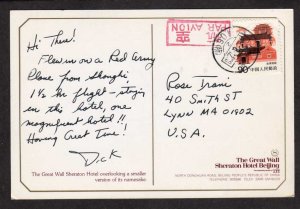 Hi There!
Flew in on a Red Army
Plane from Shanghi,
1½ Hr flight - stayin
in this hotel, one
magnificent hotel!!
Having Great Time!
Dick
The Great Wall Sheraton Hotel overlooking a smaller
version of its namesake
航空
PAR AVION
中国人民邮政
Rose Irani
40 Smith St
Lynn MA 01902
U.S.A.
The Great Wall
Sheraton Hotel Beijing
NORTH DONGHUAN ROAD, BEIJING, PEOPLE'S REPUBLIC OF CHINA